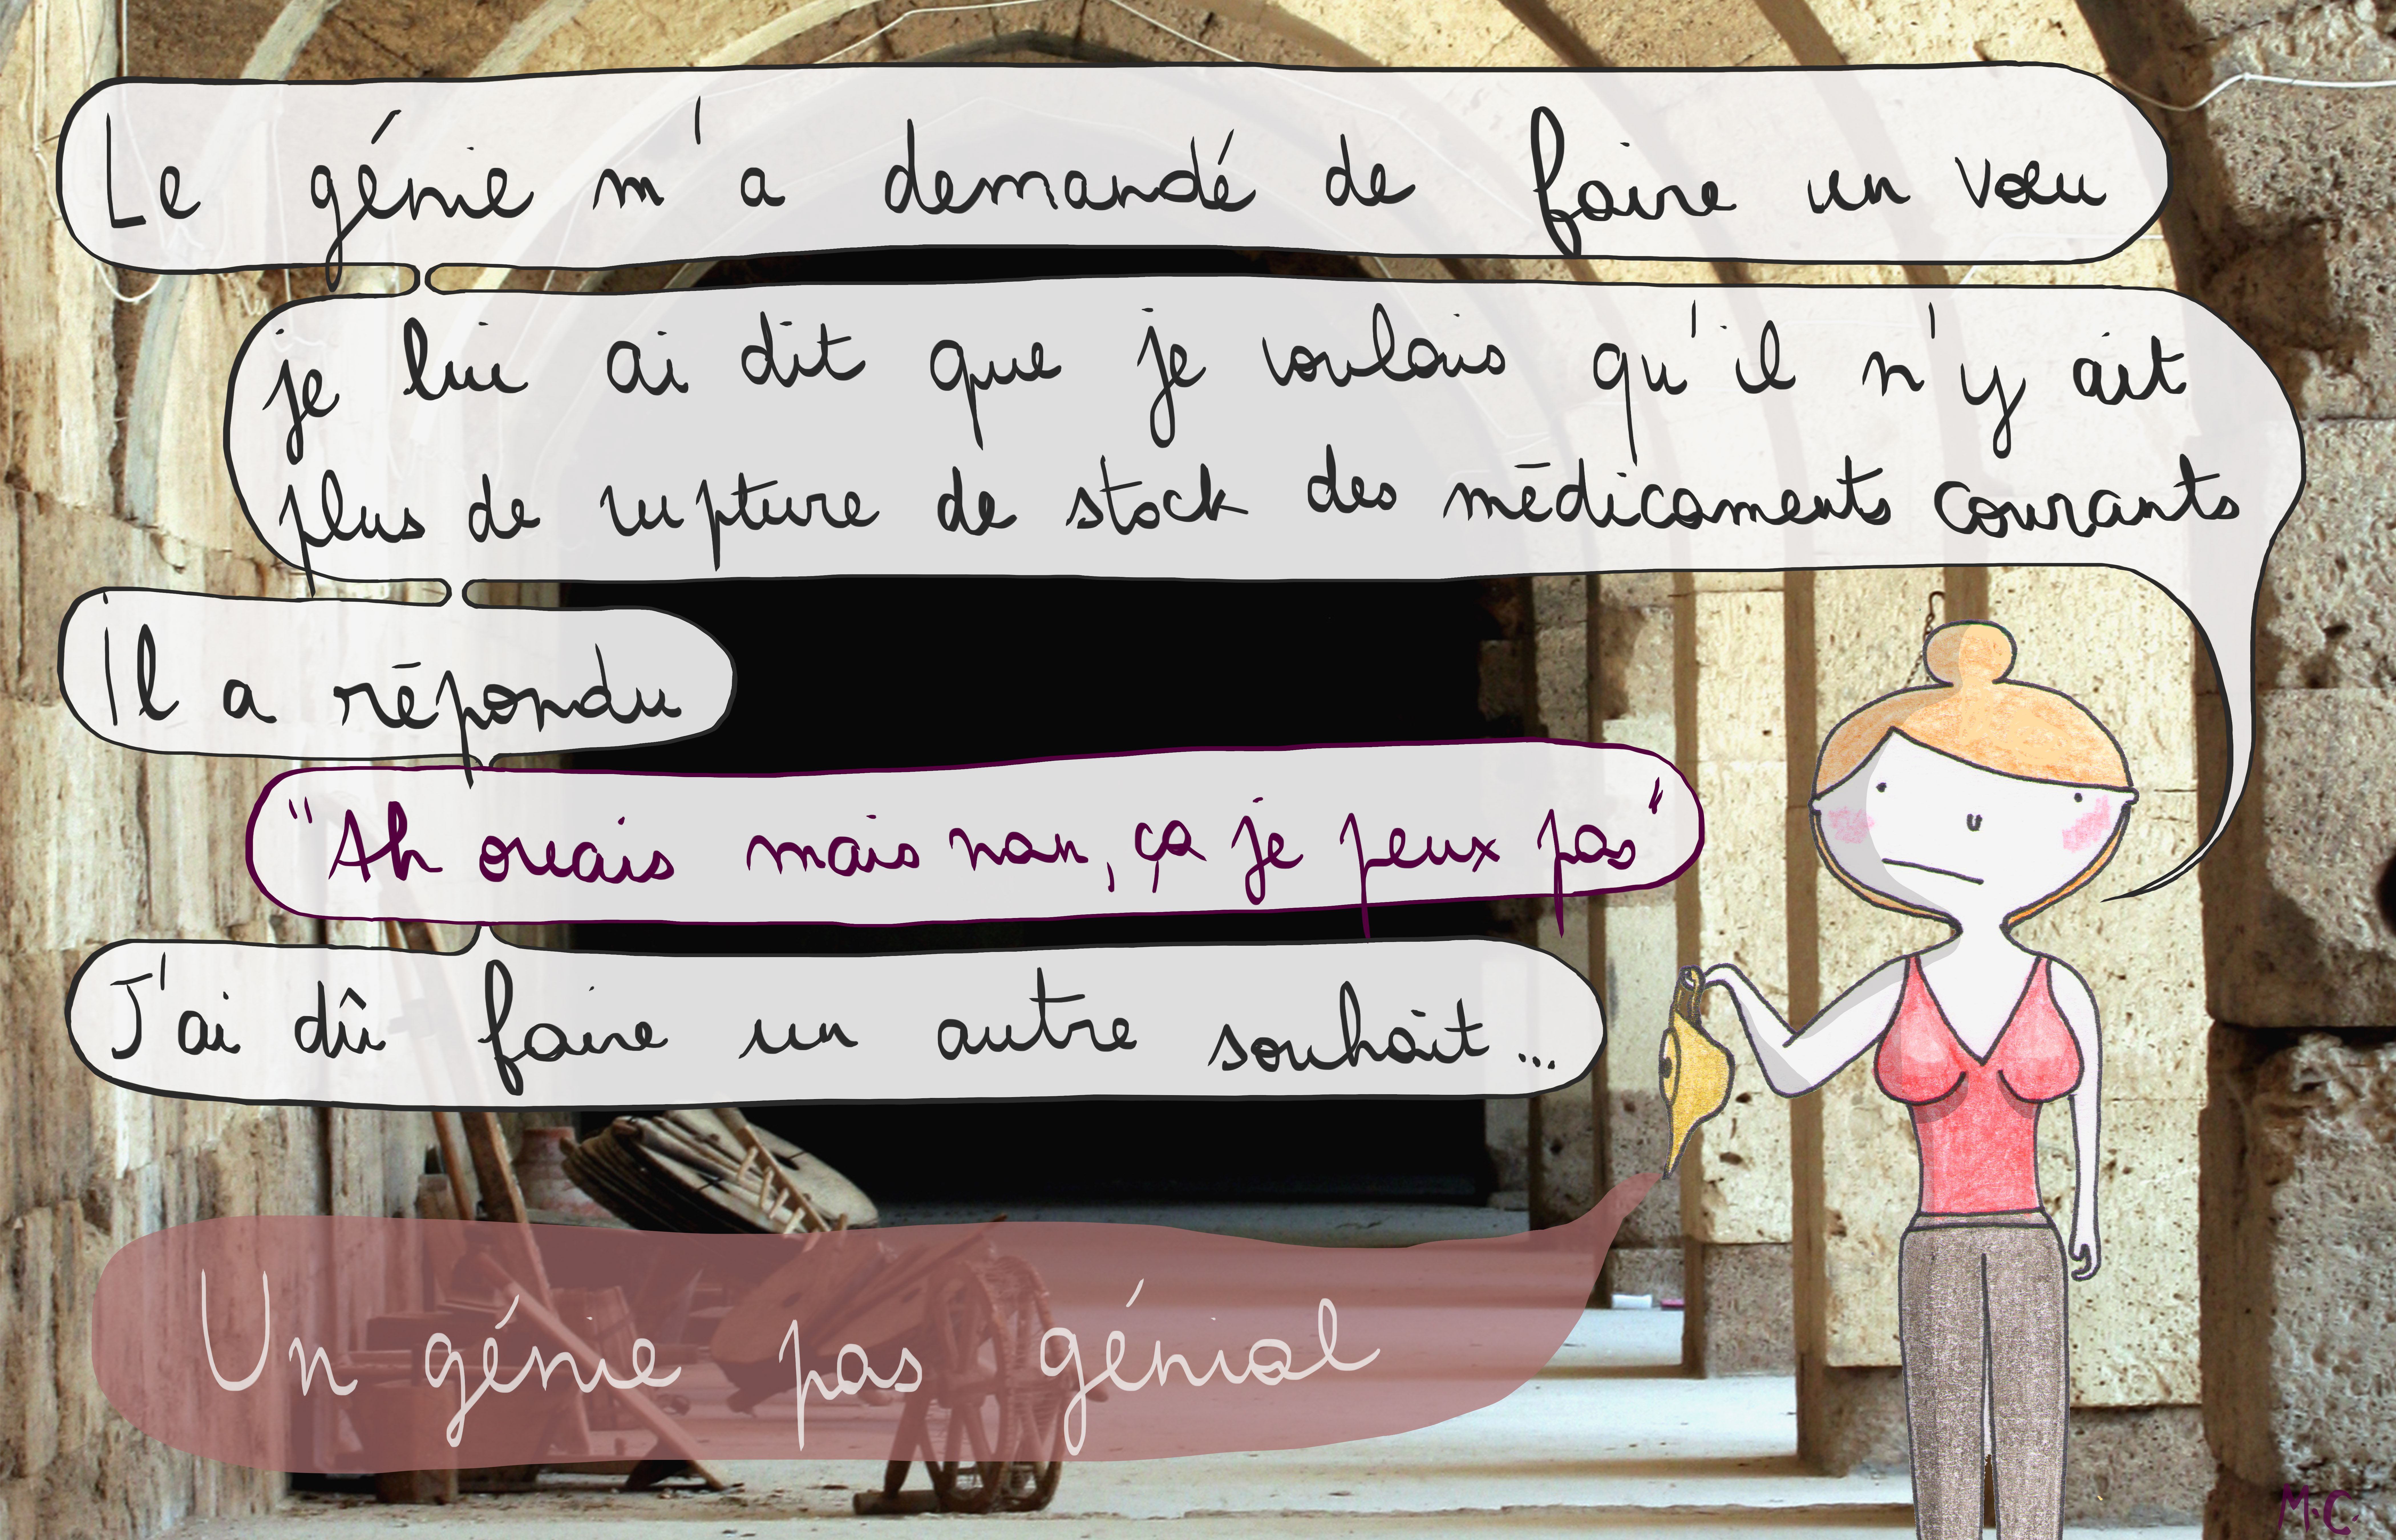 Le génie m'a demandé de faire un vœu
je lui ai dit que je voulais qu'il n'y ait
plus de rupture de stock des médicaments courants
Il a répondu
"Ah ouais mais nan, ça je peux pas"
J'ai dû faire un autre souhait...
Un génie pas génial
M.C.